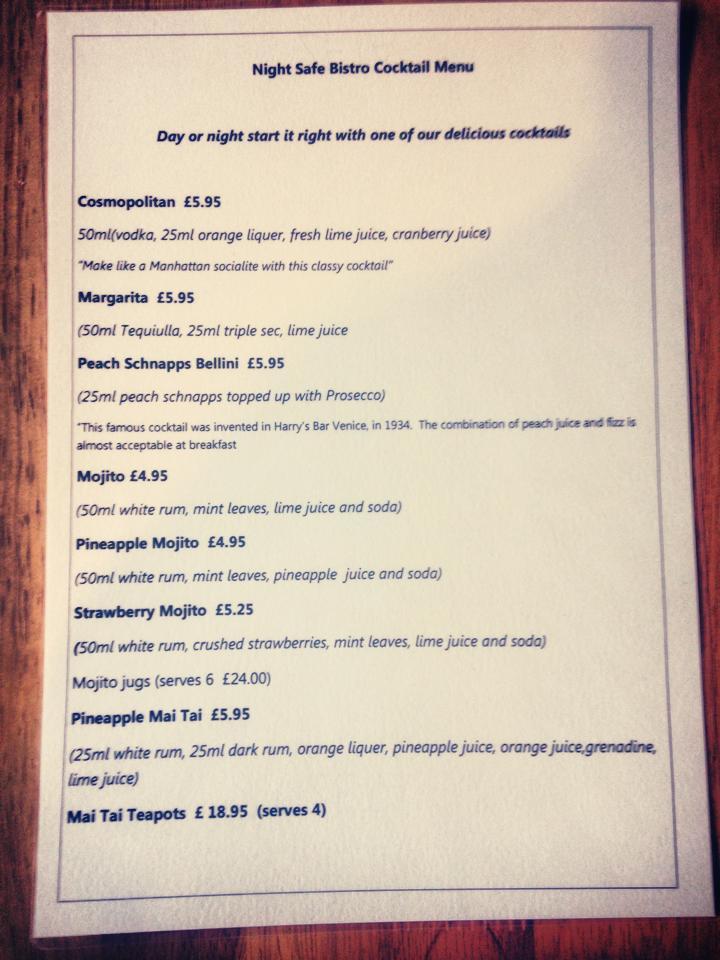 Night Safe Bistro Cocktail Menu
Day or night start it right with one of our delicious cocktails
Cosmopolitan £5.95
50ml(vodka, 25ml orange liquer, fresh lime juice, cranberry juice)
"Make like a Manhattan socialite with this classy cocktail"
Margarita £5.95
(50ml Tequiulla, 25ml triple sec, lime juice
Peach Schnapps Bellini £5.95
(25ml peach schnapps topped up with Prosecco)
"This famous cocktail was invented in Harry's Bar Venice, in 1934. The combination of peach juice and fizz is
almost acceptable at breakfast
Mojito £4.95
(50ml white rum, mint leaves, lime juice and soda)
Pineapple Mojito £4.95
(50ml white rum, mint leaves, pineapple juice and soda)
Strawberry Mojito £5.25
(50ml white rum, crushed strawberries, mint leaves, lime juice and soda)
Mojito jugs (serves 6 £24.00)
Pineapple Mai Tai £5.95
(25ml white rum, 25ml dark rum, orange liquer, pineapple juice, orange juice,grenadine,
lime juice)
Mai Tai Teapots £ 18.95 (serves 4)